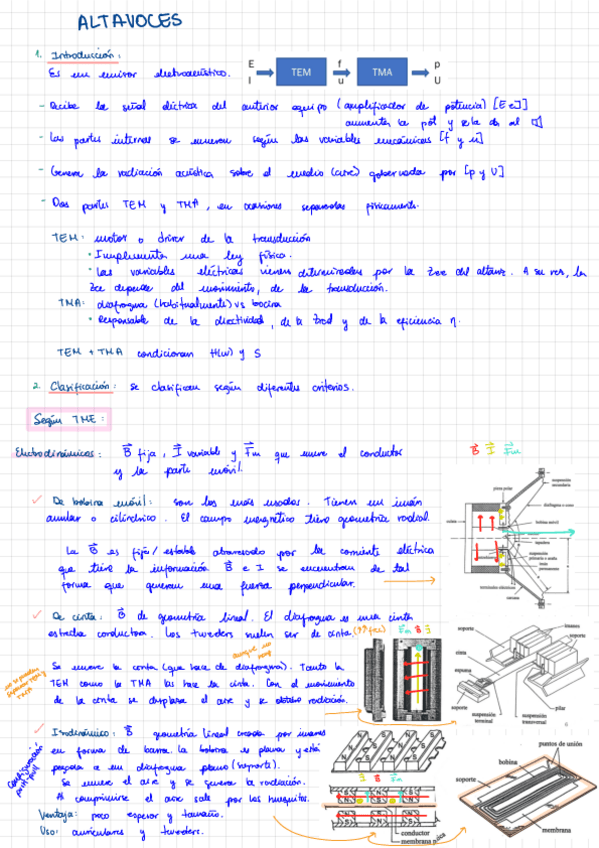 ALTAVOCES
1. Introducción:
Es un emisor electroacústico.
E
I
TEM
f
u
TMA
p
U
- Recibe la señal eléctrica del anterior equipo (amplificador de potencia) [E e I]
aumenta la pot y se la da al
- Las partes internas se mueven según las variables mecánicas [f y u]
- Genera la radiación acústica sobre el medio (aire) gobernada por [p y U]
- Dos partes TEM y TMA, en ocasiones separadas físicamente.
TEM: motor o driver de la transducción
• Implementa una ley física.
• Las variables eléctricas vienen determinadas por la Zee del altavoz. A su vez, la
Zee depende del movimiento, de la transducción.
TMA: diafragma (habitualmente) vs bocina
• Responsable de la directividad, de la Zrad y de la eficiencia η.
TEM + TMA condicionan H(w) y S
2. Clasificación: se clasifican según diferentes criterios.
Según TME:
Electrodinámicos: B fija, I variable y Fm que mueve el conductor
y la parte móvil.
B I Fm
✓ De bobina móvil: son los más usados. Tienen un imán
anular o cilíndrico. El campo magnético tiene geometría radial.
La B es fija/estable atravesado por la corriente eléctrica
que tiene la información. B e I se encuentran de tal
forma que generan una fuerza perpendicular.
suspensión
secundaria
pieza polar
diafragma o cono
bobina móvil
imán
suspensión
primaria o araña
imán
permanente
terminales eléctricos
✓ De cinta: B de geometría lineal. El diafragma es una cinta
estrecha conductora. Los tweeters suelen ser de cinta
Fm B I
Se mueve la cinta (que hace de diafragma). Tanto la
TEM como la TMA las hace la cinta. Con el movimiento
de la cinta se desplaza el aire y se obtiene radiación.
no se pueden
separar TEM y
TMA
soporte
imanes
soporte
cinta
espuma
soporte
suspensión
terminal
suspensión
transversal
pilar
✓ Isodinámico: B geometría lineal creada por imanes
en forma de barra. La bobina es plana y está
pegada a un diafragma plano (soporte).
Se mueve el aire y se genera la radiación.
Al comprimirse el aire sale por los huequitos.
Configuración
push-pull
Ventaja: poco espesor y tamaño.
Uso: auriculares y tweeters.
I B Fm
N S
conductor
membrana
puntos de unión
bobina
soporte
membrana